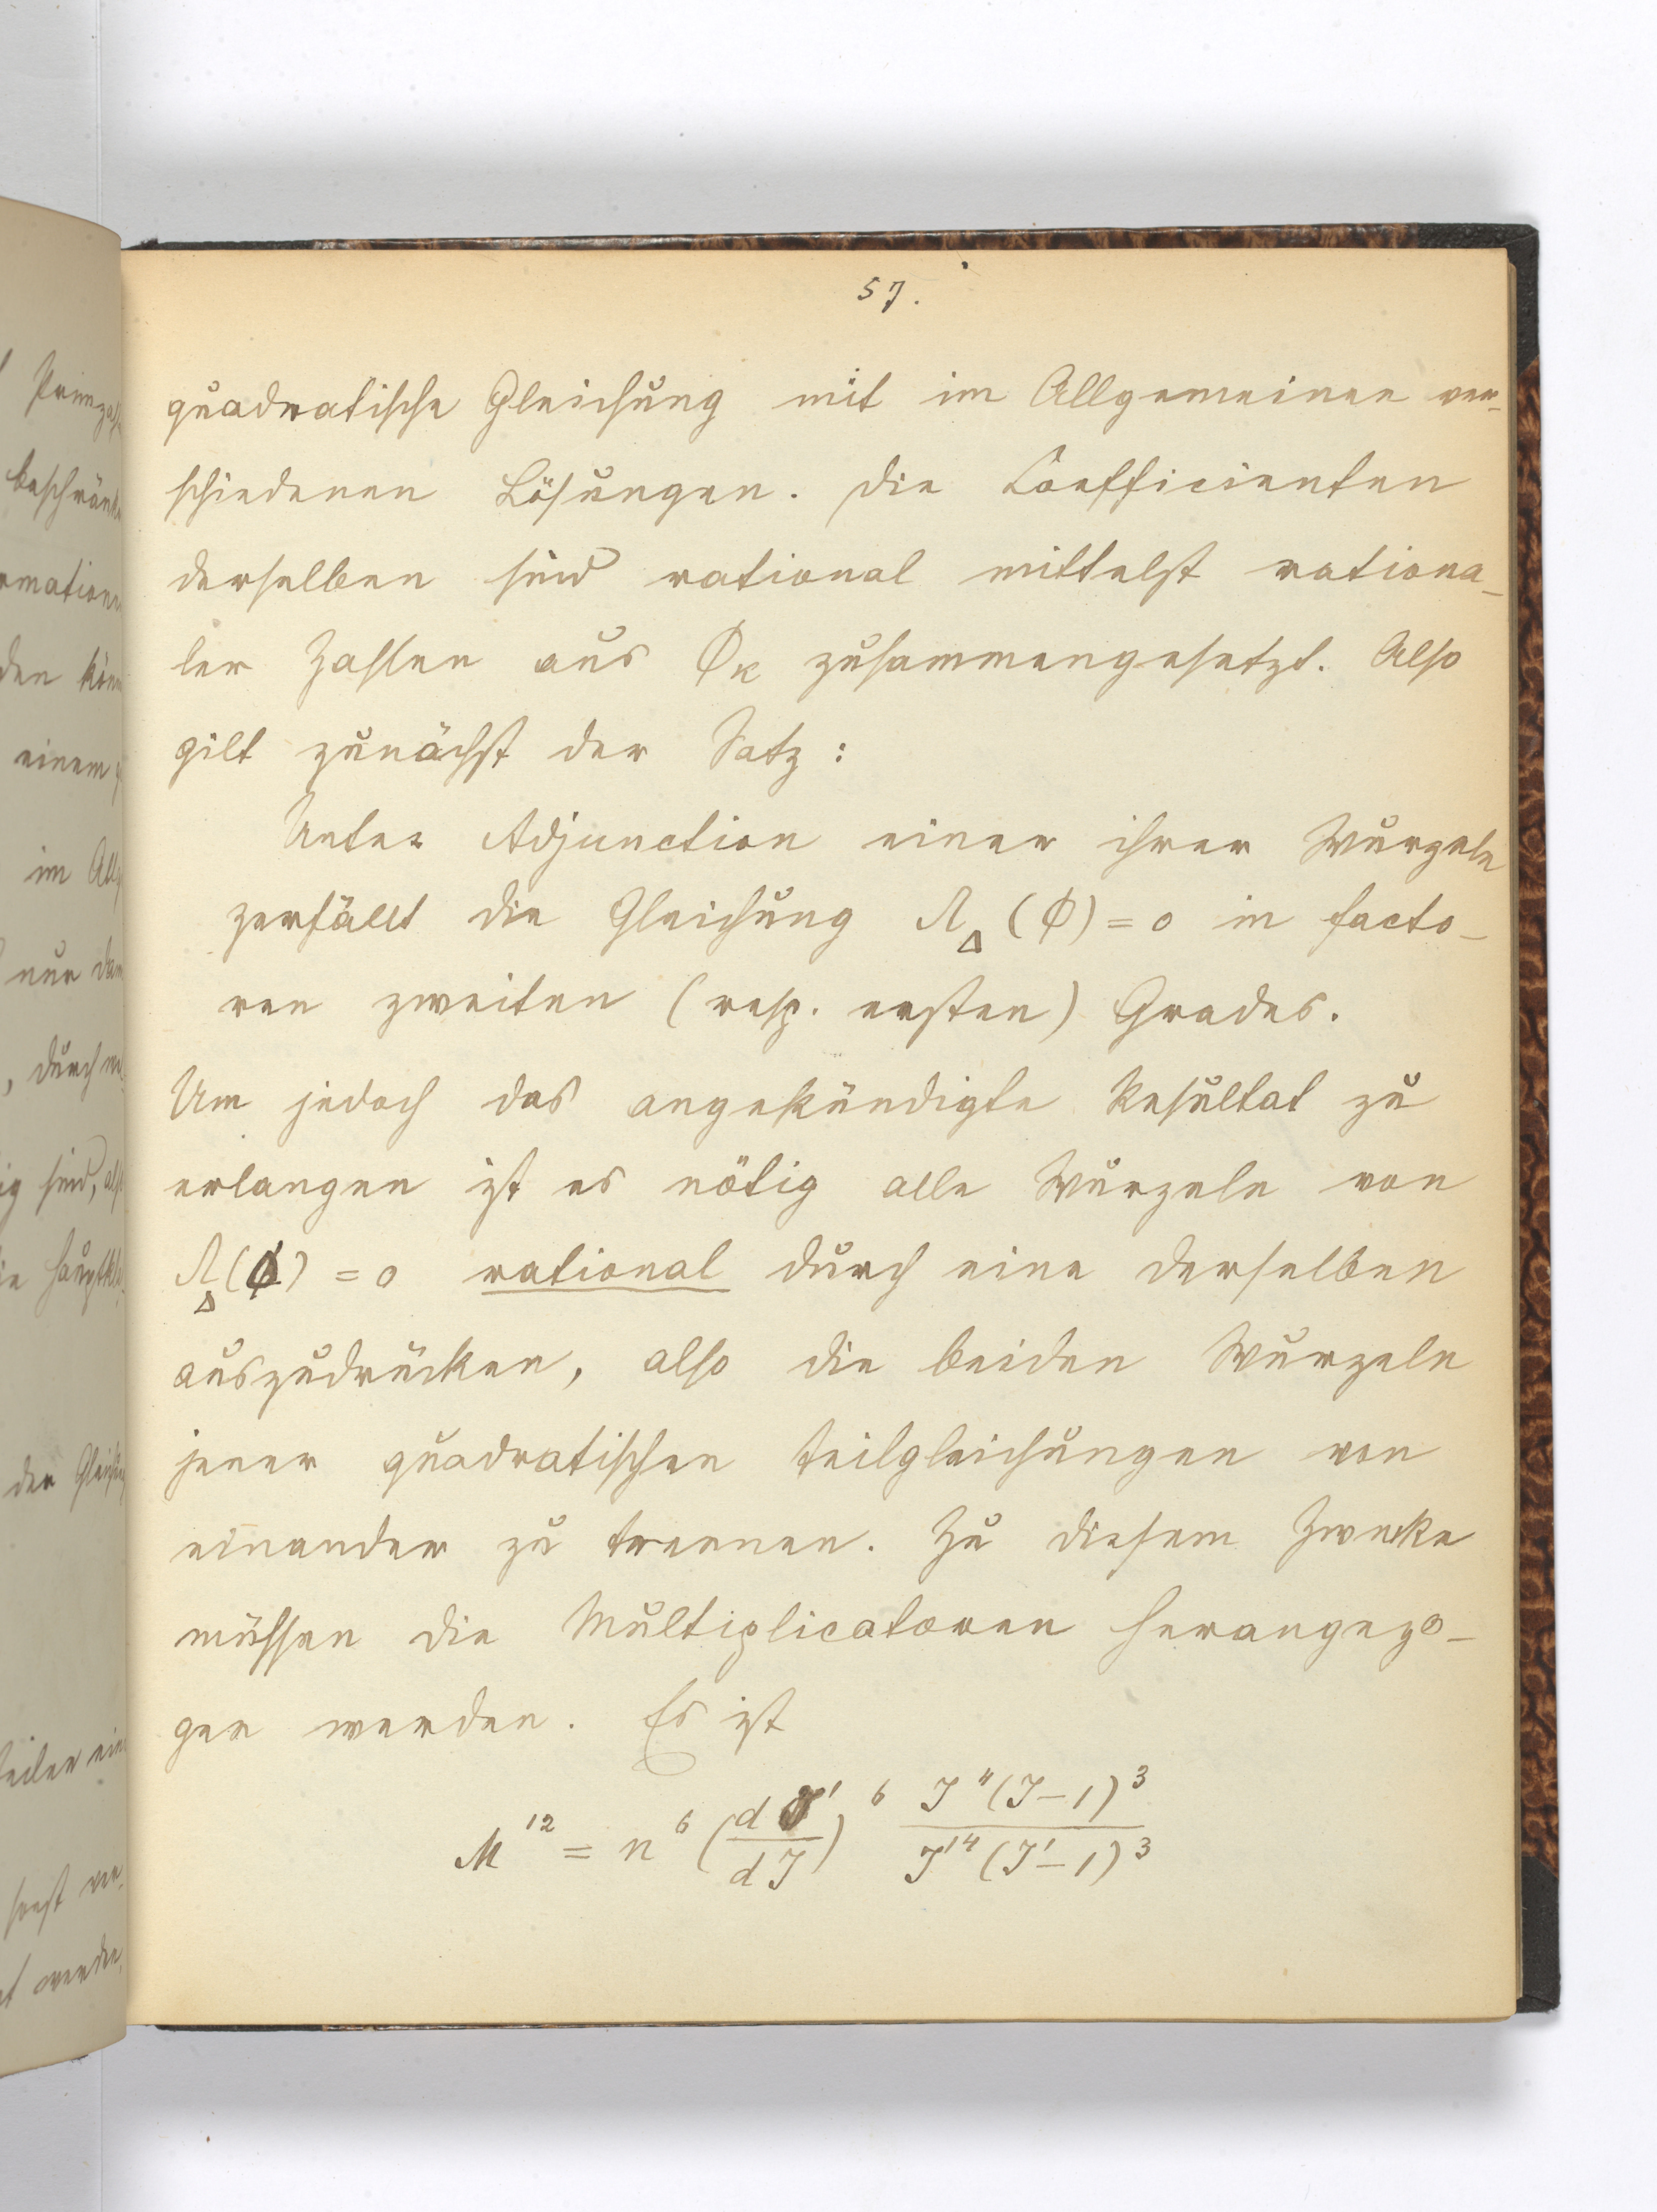 57.
quadratische Gleichung mit im Allgemeinen ver-
schiedenen Lösungen. Die Coefficienten
derselben sind rational mittelst rationa-
ler Zahlen aus Φ_K zusammengesetzt. Also
gilt zunächst der Satz:
Unter Adjunction einer ihrer Wurzeln
zerfällt die Gleichung Λ_Δ (Φ) = 0 in Facto-
ren zweiten (resp. ersten) Grades.
Um jedoch das angekündigte Resultat zu
erlangen ist es nötig alle Wurzeln von
Λ_Δ (Φ) = 0 rational durch eine derselben
auszudrücken, also die beiden Wurzeln
jener quadratischen Teilgleichungen von
einander zu trennen. Zu diesem Zwecke
müssen die Multiplicatoren herangezo-
gen werden. Es ist
M^12 = n^6 (dJ'/dJ)^6 J^4(J-1)^3 / J'^4(J'-1)^3
Primzah
beschränk
rmatione
den könn
einem
im Allg
nur dan
, durch
ig sind, als
der Gleichung
teiler ein
sonst
werden,